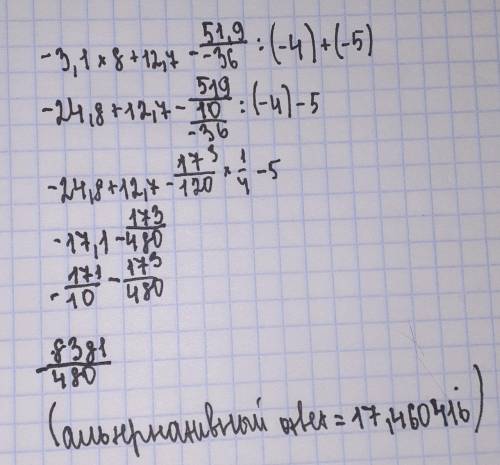 -3,1 × 8 + 12,7 - 51,9/-36 : (-4) + (-5)
-24,8 + 12,7 - 519/10/-36 : (-4) - 5
-24,8 + 12,7 - 173/120 × 1/4 - 5
-17,1 - 173/480
-171/10 - 173/480
-8381/480
(альтернативный ответ = 17,460416)